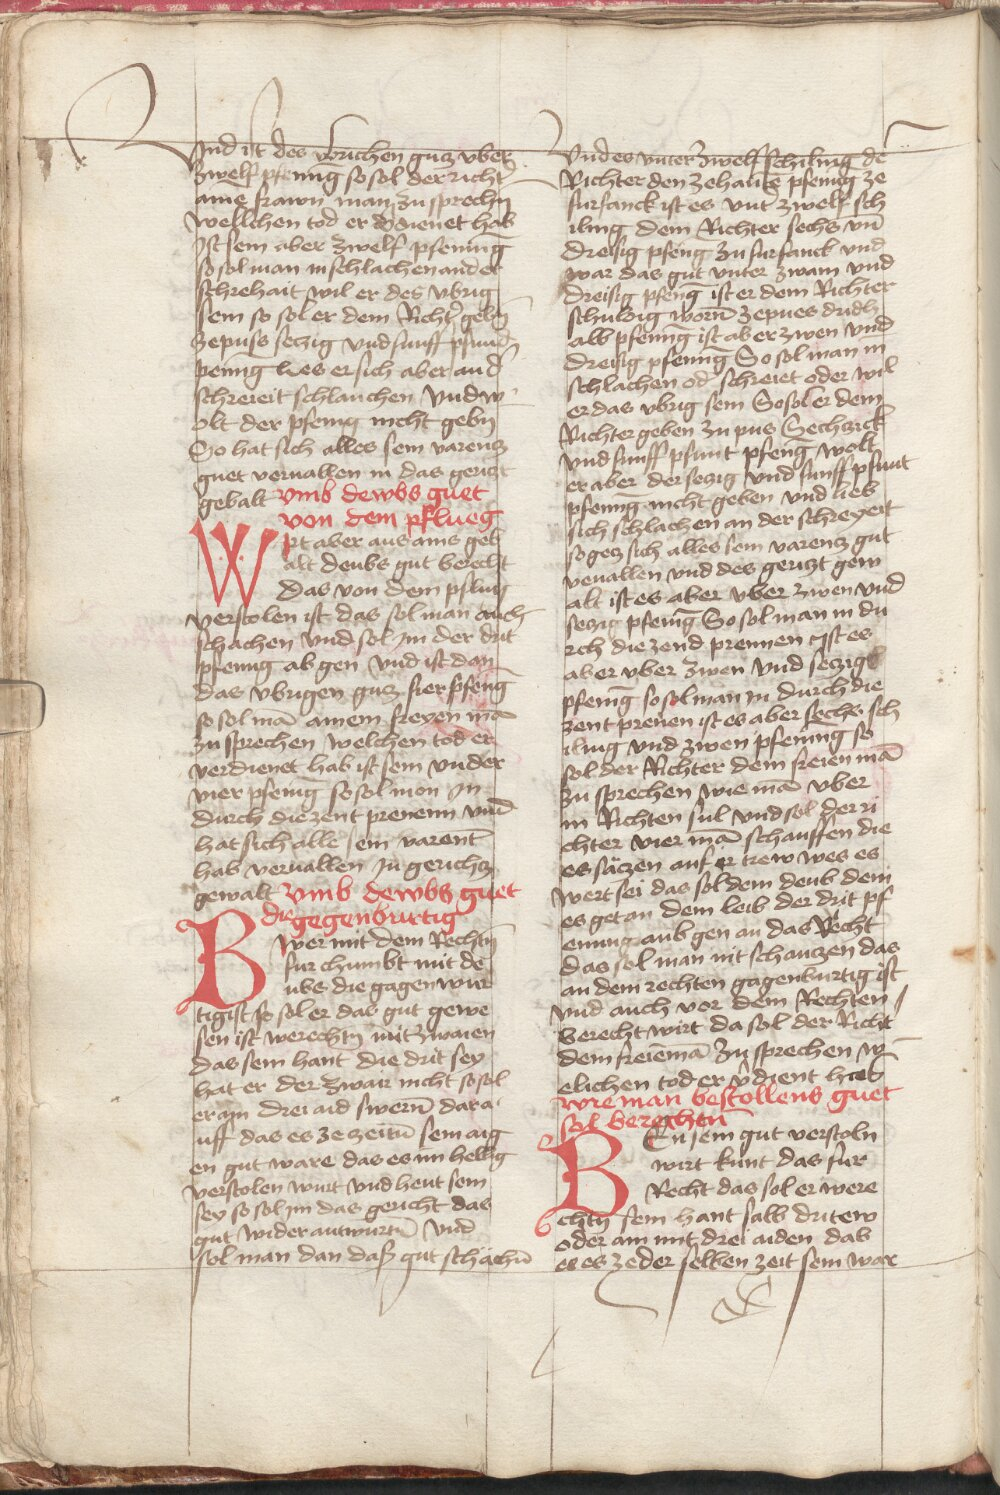 Und ist des vbrichen gutz vber
zwelf pfennig so sol der richt̄
aine frawn man zu sprechn̄
wellichen tod er v̄dienet hab
Ist sein aber zwelf pfenning
so sol man in schlachen an der
schrehait wil er des vbrig
sein so sol er dem Richt̄ gebn̄
ze puss seczig vnd funff pfund
pening lies er sich aber an d̄
schreieit schlauchen vnd w
olt der pfenig nicht gebn̄
So hat sich alles sein varencz
guet veruallen in das gericzt
gebalt vmb dewbs guet
von dem pflueg
Wirt aber aus ains geb
alt deubs gut berecht
das von dem pflug
verstolen ist das sol man auch
schachen vnd sol im der drit
pfenig ab gen vnd ist dan
das vbrigen gutz fier pfenḡ
so sol mā ainem freyen mā
zu sprechen welchen tod er
verdienet hab ist sein vnder
vier pfenig so sol mon In
durch die zent prenenn vnd
hat sich alle sein varent
hab veruallen In gerichtz
gewalt vmb dewbs guet
die gegenburtig
Ber mit dem Rechtn̄
fur chumbt mit de
ube die gagen wur
tig ist so sol er das gut gewe
sen ist werechtn̄ mit zwaien
das sein hant die drit sey
hat er der zwair nicht so sol
er am drei aid swern̄ dara
uff das es ze zeitn̄ sein aig
en gut ware das es im hellig
verstolen wurt vnd heut sein
sey so sol im das gericht das
gut wider antwurtn̄ vnd
sol man dan dass gut schachn̄
Vnd es vnter zwelf schiling de
Richter den zehantē pfenig ze
furfanck ist es vnt̄ zwelf sch
iling dem Richter sechs vn̄
dreisig pfeng zu furfanck vnd
war das gut vnter zwain vnd
dreisig pfenḡ ist er dem Richter
schuldig worn̄ ze pues dridh
alb pfennig ist aber zwen vnd
dreisig pfennig So sol man in
schlachen od̄ schreiet oder wil
er das vbrig sein So sol er dem
Richter geben zu pus Sechzick
vnd funff pfunt pfenḡ woll
er aber der seczig vnd funff pfunt
pfennig nicht geben vnd lies
sich schlachen an der schreyeit
so gez sich alles sein varencz gut
veuallen vnd des gericzt gew
alt ist es aber vber zwen vnd
seczig pfenīg So sol man in du
rch die zend prennen Ist es
aber vber zwen vnd seczig
pfenig so sol man in durch die
zent prenen ist es aber sechs sch
iling vnd zwen pfening so
sol der Richter dem freien mā
zu sprechen wie mā vber
in Richten sul vnd sol der ri
chter vier mā schauffen die
es säczen auf ir trew wes es
wert sei das sol dem deub dem
es getan dem leib der drit pf
ening aub gen an das Recht
das sol man nit schauczen das
an dem rechten gagenburtig ist
vnd auch vor dem Rechten
berecht wirt da sol der Richt̄
dem freiēmā zu sprechen w
elichen tod er v̄dient hab
wie man bestollens guet
sol berechtn̄
Bem sein gut verstoln
wirt kunt das fur
Recht das sol er were
chtn̄ sein hant salb dritew
oder ain mit drei aiden das
es es ze der selben zeit sein war